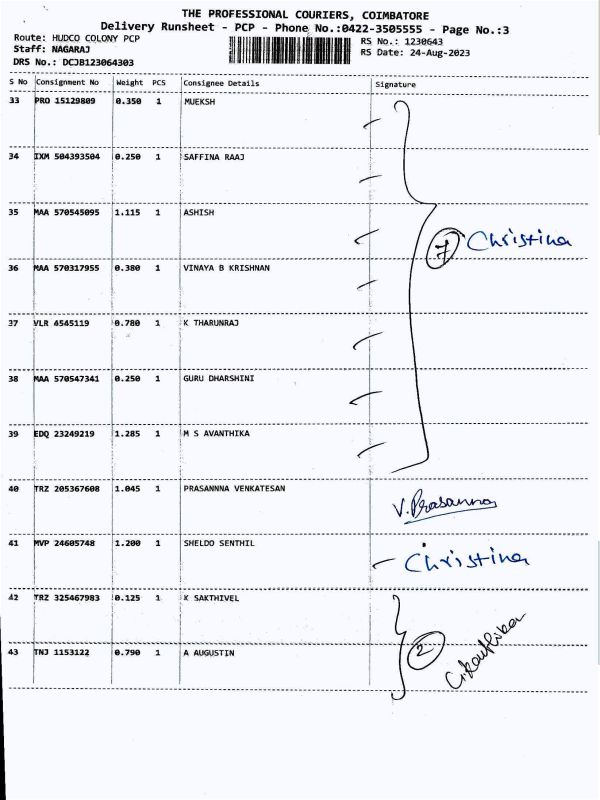 THE PROFESSIONAL COURIERS, COIMBATORE
Delivery Runsheet - PCP - Phone No.:0422-3505555 - Page No.:3
Route: HUDCO COLONY PCP
RS No.: 1230643
Staff: NAGARAJ
RS Date: 24-Aug-2023
DRS No.: DCJB123064303
S No Consignment No Weight PCS Consignee Details Signature
33 PRO 15129809 0.350 1 MUEKSH
34 IXM 504393504 0.250 1 SAFFINA RAAJ
35 MAA 570545095 1.115 1 ASHISH
7 Christina
36 MAA 570317955 0.380 1 VINAYA B KRISHNAN
37 VLR 4545119 0.780 1 K THARUNRAJ
38 MAA 570547341 0.250 1 GURU DHARSHINI
39 EDQ 23249219 1.285 1 M S AVANTHIKA
40 TRZ 205367608 1.045 1 PRASANNNA VENKATESAN
V. Prasanna
41 MVP 24605748 1.200 1 SHELDO SENTHIL
Christina
42 TRZ 325467983 0.125 1 K SAKTHIVEL
43 TNJ 1153122 0.790 1 A AUGUSTIN
2